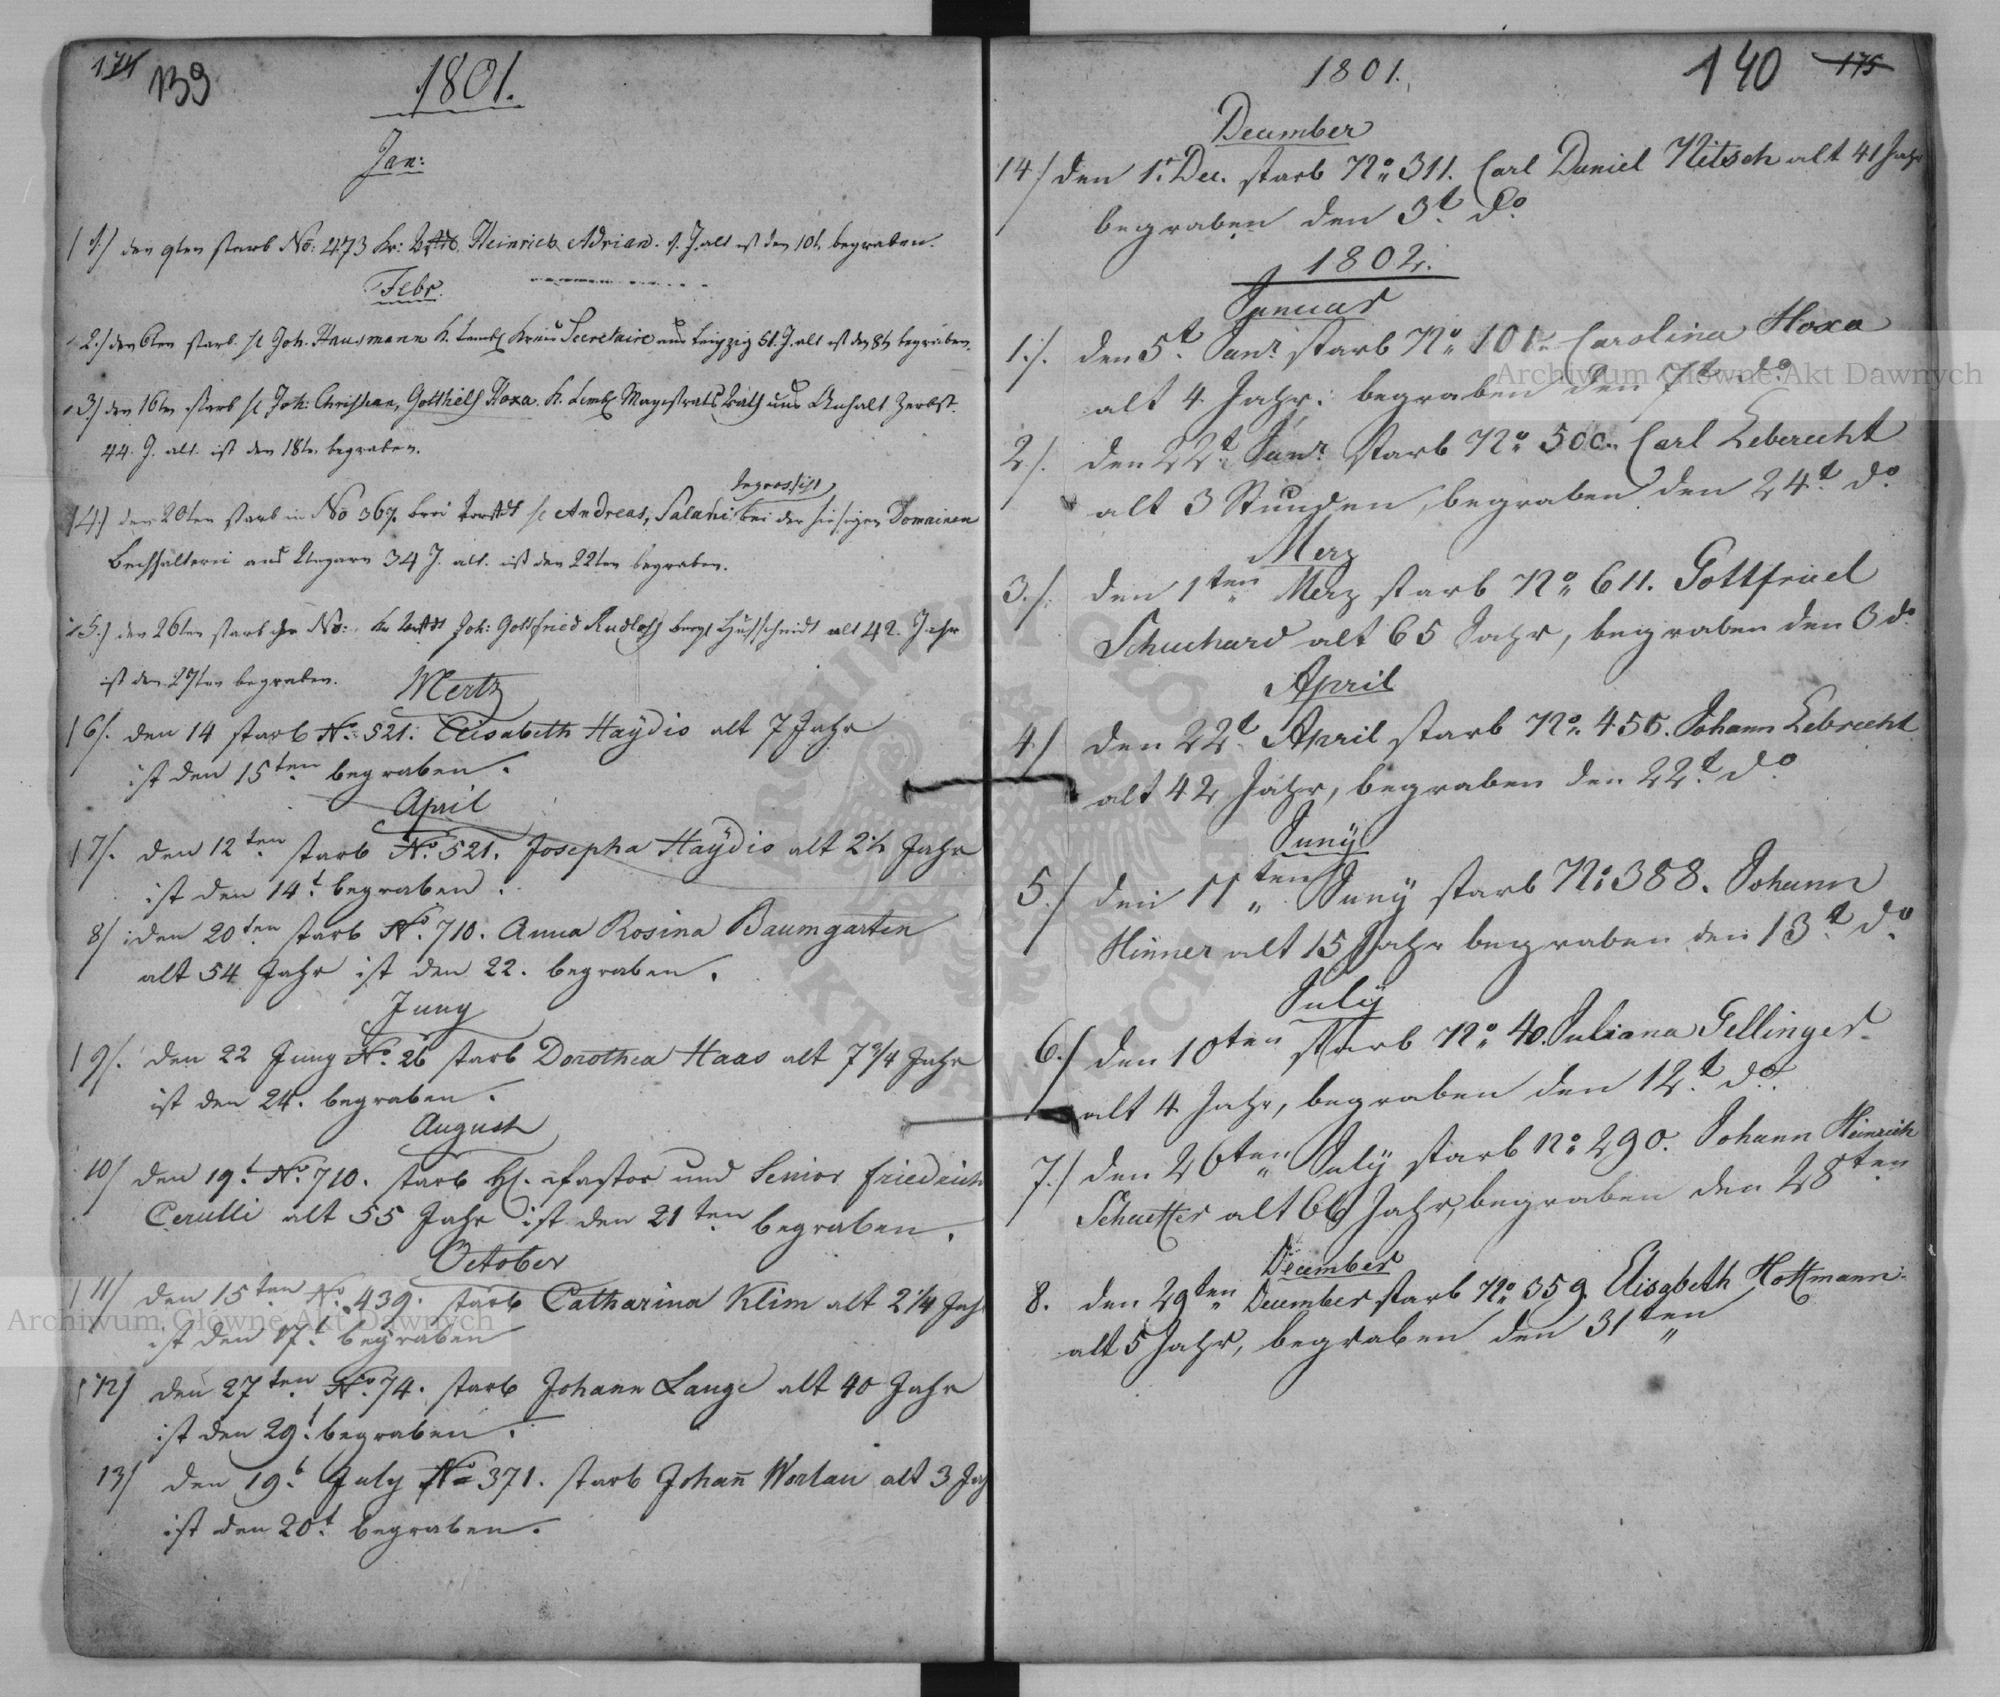 174 139
1801.
Jan:
1.) den 9ten starb No: 473 Kr: Heinrich Adrian. 1. J. alt ist den 10t. begraben.
Febr.
2.) den 6ten starb H Joh. Hausmann K. Lemb. Kreis Secretaire aus Leipzig 51. J. alt ist den 8t. begraben.
3.) den 16ten starb H Joh: Christian, Gotthelf Hoxa. K. Lemb. Magistrats Rath aus Anhalt Zerbst.
44. J. alt. ist den 18ten begraben.
Ingrossist
4.) den 20ten starb in No 367. H Andreas, Salahi, bei der hiesigen Domainen
Buchhalterei aus Ungarn 34 J. alt. ist den 22ten begraben.
5.) den 26ten starb No: Joh: Gottfried Rudloff Hufschmidt alt 42. Jahr
ist den 27ten begraben.
Mertz
6/. den 14 starb No. 521. Elisabeth Haÿdis alt 7 Jahr
ist den 15ten begraben.
April
7/. den 12ten starb No. 521. Josepha Haÿdis alt 2½ Jahr
ist den 14t. begraben.
8/ den 20ten starb No. 710. Anna Rosina Baumgarten
alt 54 Jahr ist den 22. begraben.
Juny
9/. den 22 Juny No. 26 starb Dorothea Haas alt 7¾ Jahr
ist den 24. begraben.
August
10/ den 19t. No. 710. starb H. Pastor und Senior Friedrich
Cerulli alt 55 Jahr ist den 21ten begraben.
October
11/ den 15ten No. 439. starb Catharina Klim alt 2¼ Jah
ist den 17t. begraben
12/ den 27ten No. 74. starb Johann Lange alt 40 Jahr
ist den 29t. begraben.
13/ den 19t. July No 371. starb Johan̄ Worlau alt 3 Jah
ist den 20t. begraben.
1801. 140 175
December
14/ den 1t. Dec. starb No. 311. Carl Daniel Nitsch alt 41 Jahr
begraben den 3t. do
1802.
Januar
1./. den 5t. Janr. starb No. 101. Carolina Hoxa
alt 4 Jahr: begraben den 7t. do.
2/. den 22t. Janr. starb No. 500. Carl Leberecht
alt 3 Stunden, begraben den 24t. do.
Merz
3./. den 1ten Merz starb No. 611. Gottfried
Schuchard alt 65 Jahr, begraben den 3 do.
April
4/ den 22t. April starb No. 455. Johann Lebrecht
alt 42 Jahr, begraben den 22t. do.
Junÿ
5./ den 11ten Junÿ starb No 388. Johann
Hinner alt 15 Jahr begraben den 13t. do.
Julÿ
6./ den 10ten starb No. 40. Juliana Gellinger
alt 4 Jahr, begraben den 12t. do.
7./ den 26ten Julÿ starb No. 290. Johann Heinrich
Schaeffer alt 66 Jahr, begraben den 28ten
December
8. den 29ten December starb No. 359. Elisabeth Hoffmann
alt 5 Jahr, begraben den 31ten
Archiwum Główne Akt Dawnych
Archiwum Główne Akt Dawnych
ARCHIWUM GŁÓWNE AKT DAWNYCH